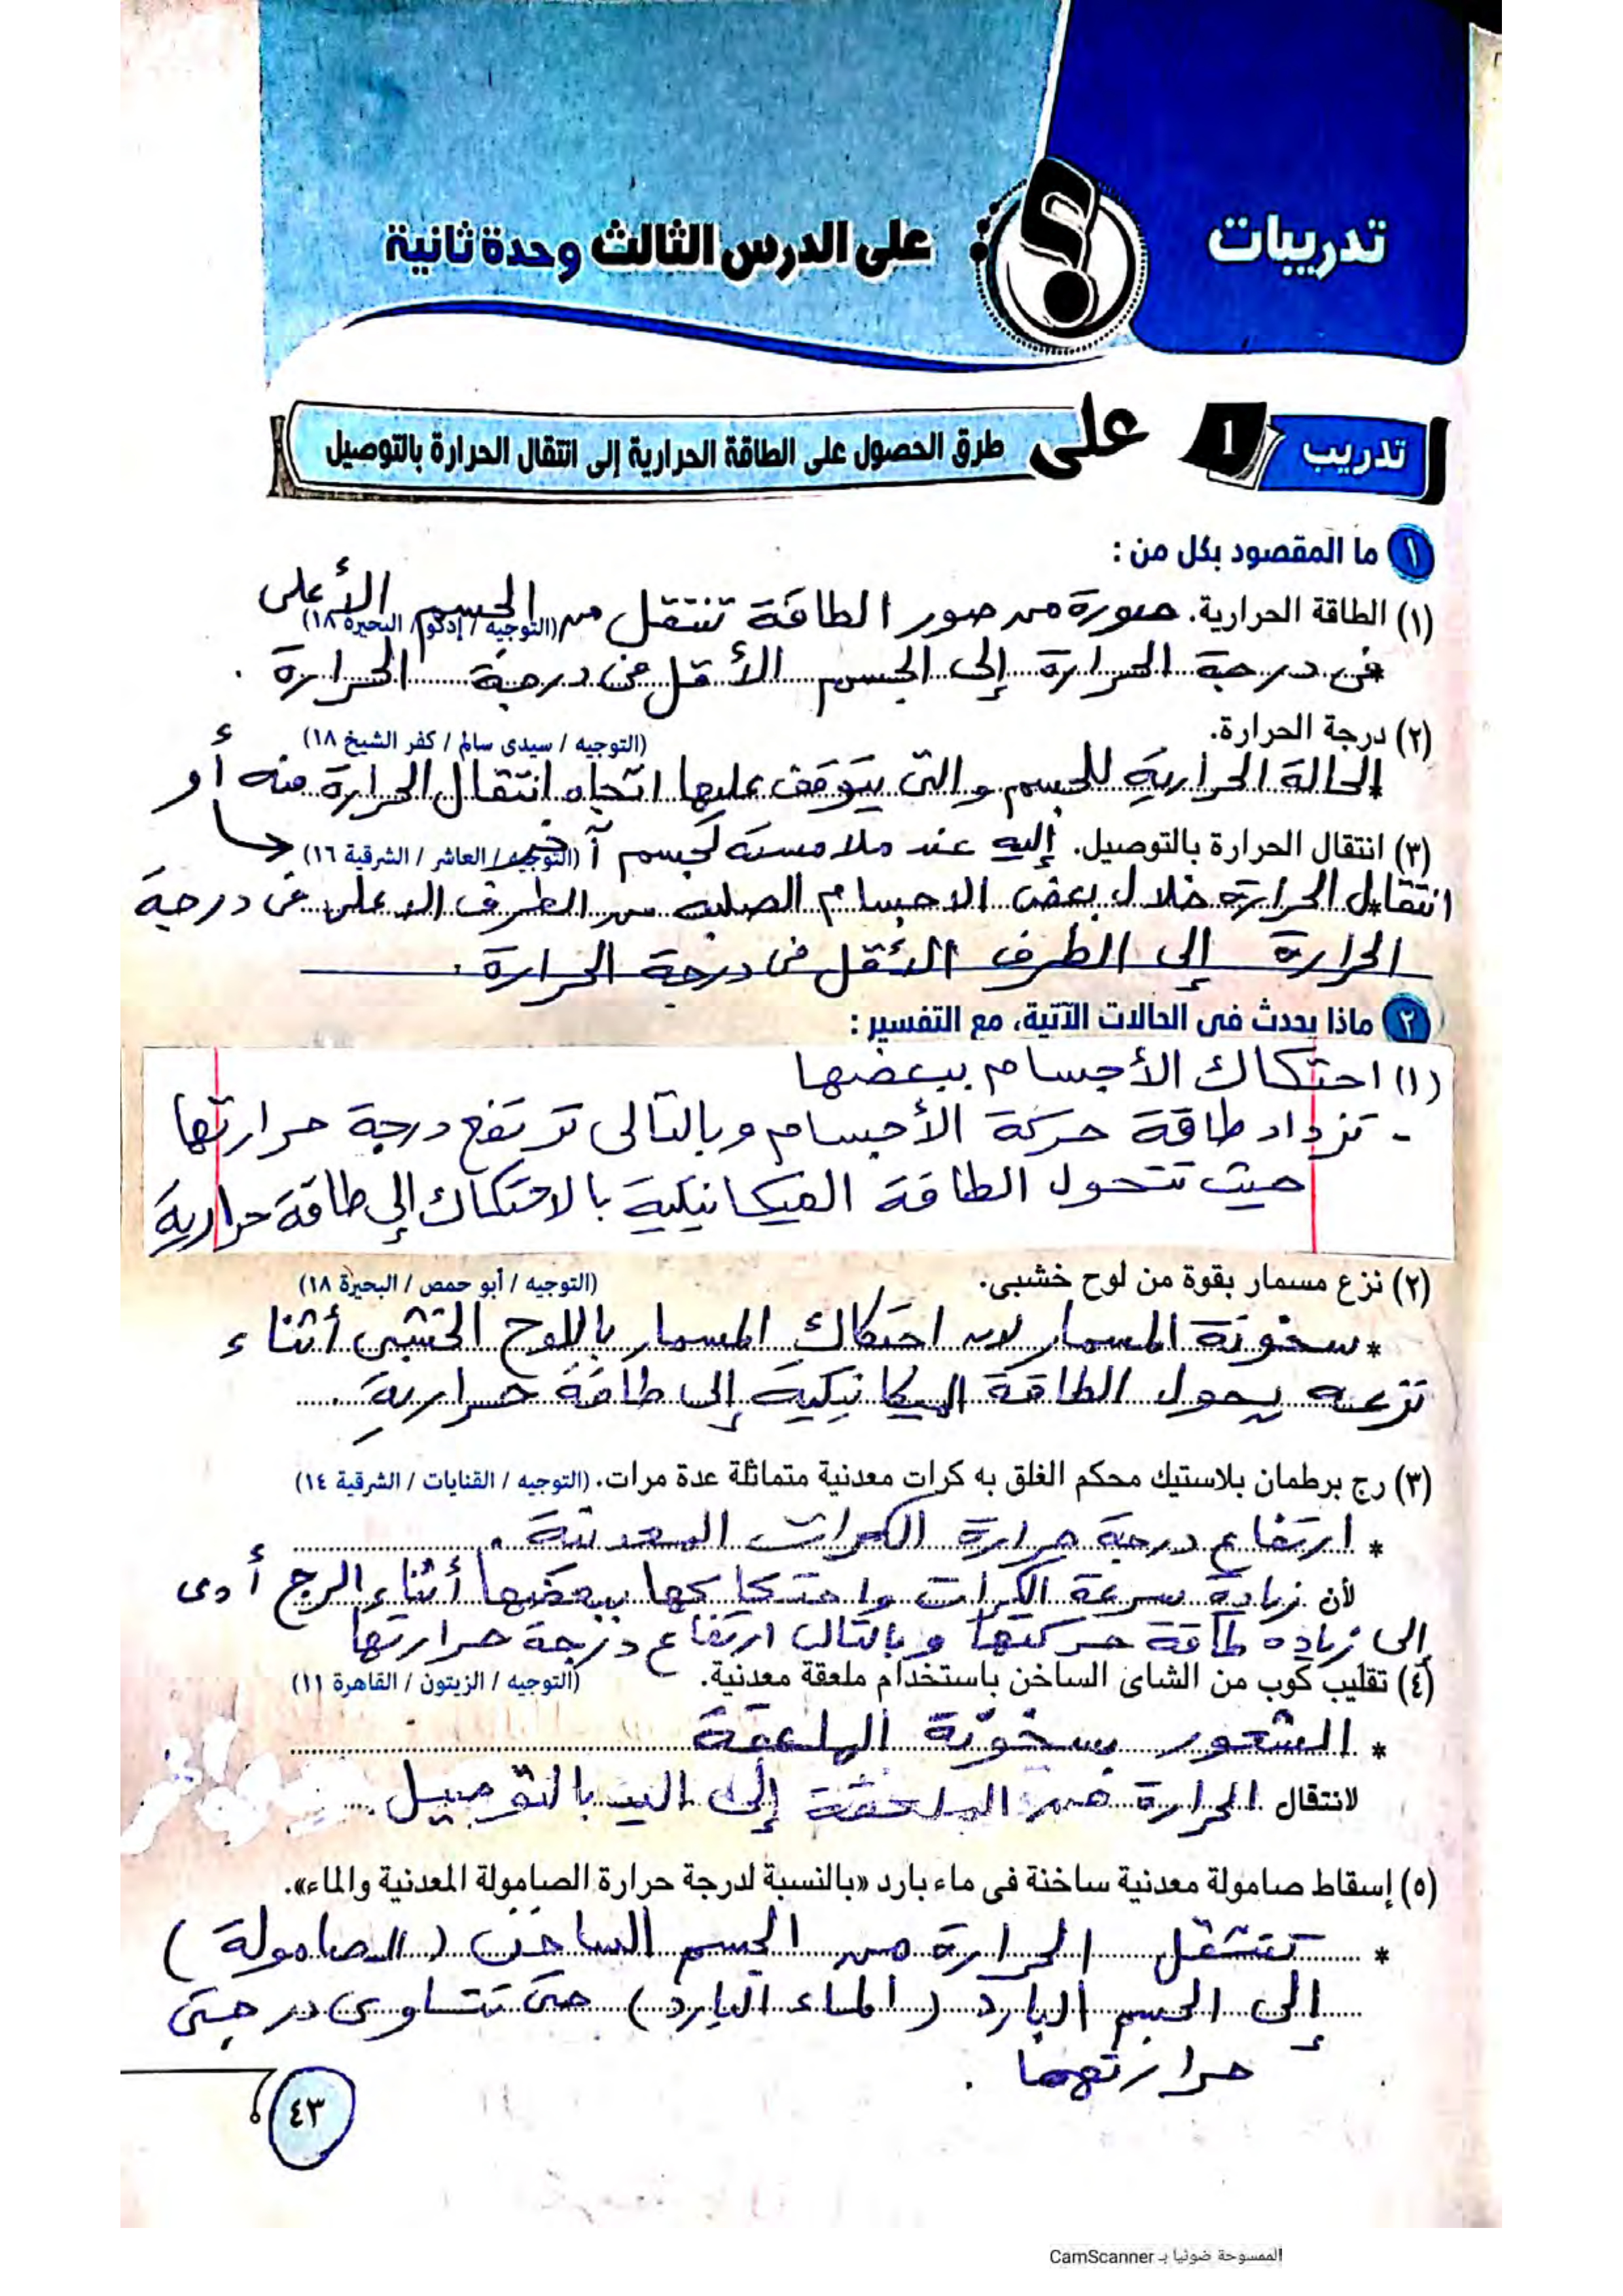 تدريبات
على الدرس الثالث وحدة ثانية
تدريب 1 على طرق الحصول على الطاقة الحرارية إلى انتقال الحرارة بالتوصيل
١ ما المقصود بكل من :
(١) الطاقة الحرارية. صورة من صور الطاقة تنتقل من الجسم الأعلى
(التوجيه / إدكو / البحيرة ١٨)
في درجة الحرارة إلى الجسم الأقل في درجة الحرارة .
(٢) درجة الحرارة. (التوجيه / سيدى سالم / كفر الشيخ ١٨)
الحالة الحرارية للجسم والتى يتوقف عليها اتجاه انتقال الحرارة منه أو
(٣) انتقال الحرارة بالتوصيل. إليه عند ملامسته لجسم آخر (التوجيه / العاشر / الشرقية ١٦)
انتقال الحرارة خلال بعض الاجسام الصلبه من الطرف الاعلى فى درجة
الحرارة إلى الطرف الأقل فى درجة الحرارة .
٢ ماذا يحدث فى الحالات الآتية، مع التفسير :
(١) احتكاك الأجسام ببعضها
- تزداد طاقة حركة الأجسام وبالتالى ترتفع درجة حرارتها
حيث تتحول الطاقة الميكانيكية بالاحتكاك إلى طاقة حرارية
(٢) نزع مسمار بقوة من لوح خشبى. (التوجيه / أبو حمص / البحيرة ١٨)
* سخونة المسمار لان احتكاك المسمار باللوح الخشبى أثناء
نزعه يحول الطاقة الميكانيكية إلى طاقة حرارية .
(٣) رج برطمان بلاستيك محكم الغلق به كرات معدنية متماثلة عدة مرات. (التوجيه / القنايات / الشرقية ١٤)
* ارتفاع درجة حرارة الكرات المعدنية .
لأن زيادة سرعة الكرات واحتكاكها ببعضها أثناء الرج أدى
إلى زيادة طاقة حركتها وبالتالى ارتفاع درجة حرارتها
(٤) تقليب كوب من الشاى الساخن باستخدام ملعقة معدنية. (التوجيه / الزيتون / القاهرة ١١)
* الشعور بسخونة الملعقة
لانتقال الحرارة من الملعقة إلى اليد بالتوصيل .
(٥) إسقاط صامولة معدنية ساخنة فى ماء بارد «بالنسبة لدرجة حرارة الصامولة المعدنية والماء».
* تنتقل الحرارة من الجسم الساخن (الصامولة)
إلى الجسم البارد (الماء البارد) حتى تتساوى درجتى
حرارتهما .
٤٣
الممسوحة ضوئيا بـ CamScanner